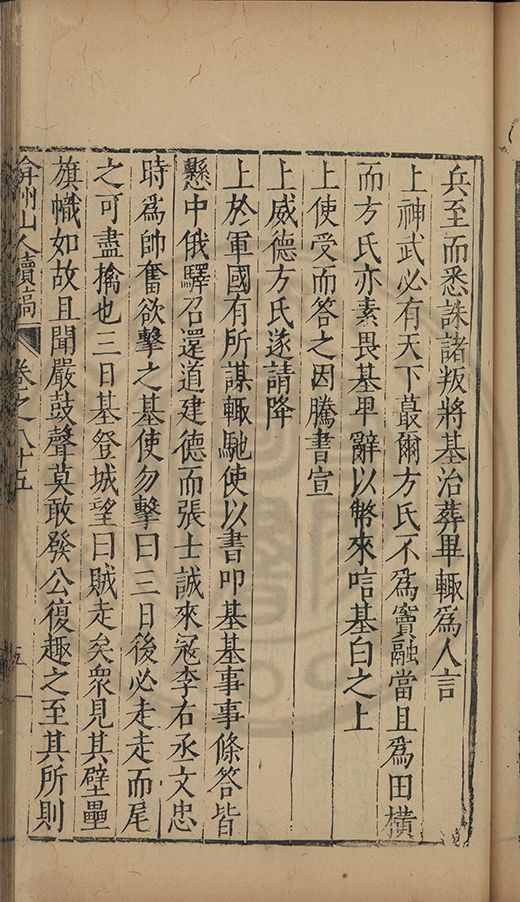 兵至而悉誅諸叛將基治葬畢輙爲人言
上神武必有天下蕞爾方氏不爲竇融當且爲田橫
而方氏亦素畏基畢辭以幣來唁基白之上
上使受而答之因騰書宣
上威德方氏遂請降
上於軍國有所謀輙馳使以書叩基基事事條答皆
懸中俄驛召還道建德而張士誠來冦李右丞文忠
時爲帥奮欲擊之基使勿擊曰三日後必走走而尾
之可盡擒也三日基登城望曰賊走矣衆見其壁壘
旗幟如故且聞嚴鼓聲莫敢發公復趣之至其所則
弇州山人續稿 卷之八十五 五